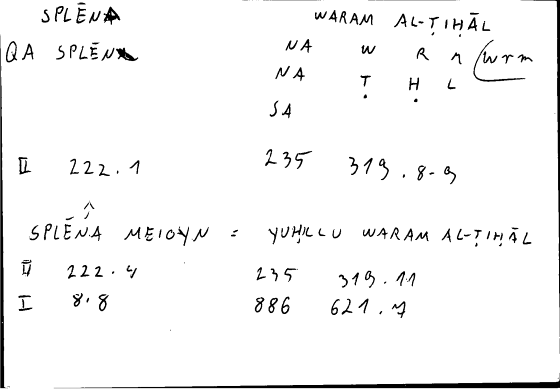 SPLĒNA WARAM AL-ṬIḤĀL
QA SPLĒN NA W R M wrm
NA Ṭ Ḥ L
SA
II 222.1 235 319.8-9
SPLĒNA MEIOYN = YUḤILLU WARAM AL-ṬIḤĀL
II 222.4 235 319.11
I 8.8 886 621.7